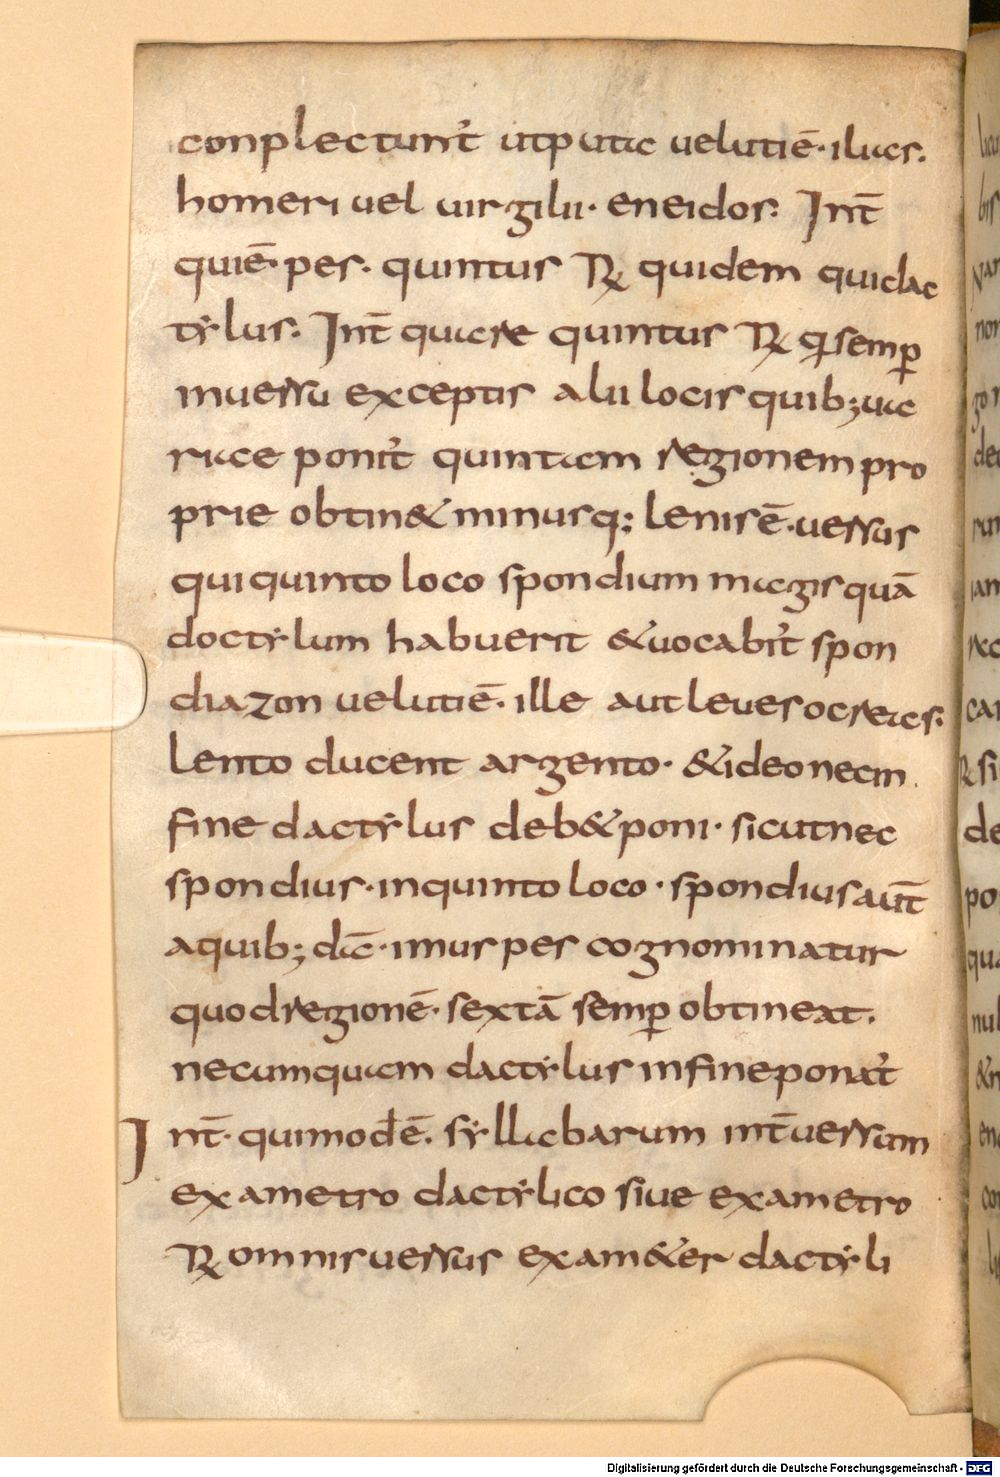 conplectunt᷒ utputa uelutiē· ilias·
homeri uel uirgilii· eneidos· Int̄
quiē· pes· quintus ℞ quidem quidac
tẏlus· Int̄ quare quintus ℞ q̢ semꝑ
in uersu exceptis alii locis quib; uic
rice ponit᷒ quintam regionem pro
prie obtin& minusq; lenis ē· uersus
qui quinto loco spondium magis quā
doctẏlum habuerit & uocabit᷒ spon
diazon uelutiē· ille aut leues ocreas·
lento ducent argento· & ideo nec in
fine dactẏlus deb& poni· sicut nec
spondius· in quinto loco· spondius aut̄
a quib; dic̄· imus pes cognominatur
quod regionē· sextā semꝑ obtineat·
nec umquam dactẏlus in fine ponat᷒
Int̄· quimodē· sẏllabarum int̄ uersum
exametro dactẏlico siue exametro
℞ omnis uersus exam&er dactẏli
Digitalisierung gefördert durch die Deutsche Forschungsgemeinschaft - DFG